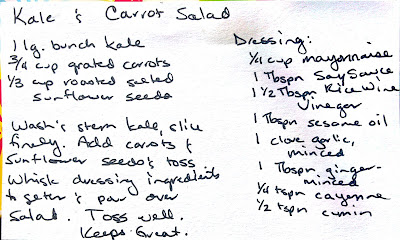 Kale & Carrot Salad
1 lg. bunch kale
3/4 cup grated carrots
1/3 cup roasted salted
sunflower seeds
Wash & stem kale, slice
finely. Add carots &
sunflower seeds & toss
Whisk dressing ingredients
together & pour over
salad. Toss well.
Keeps Great.
Dressing:
1/4 cup mayonnaise
1 Tbspn Soy Sauce
1 1/2 Tbspn Rice Wine
Vinegar
1 Tbspn sesome oil
1 clove garlic,
minced
1 Tbspn ginger-
minced
1/4 tspn cayenne
1/2 tspn cumin